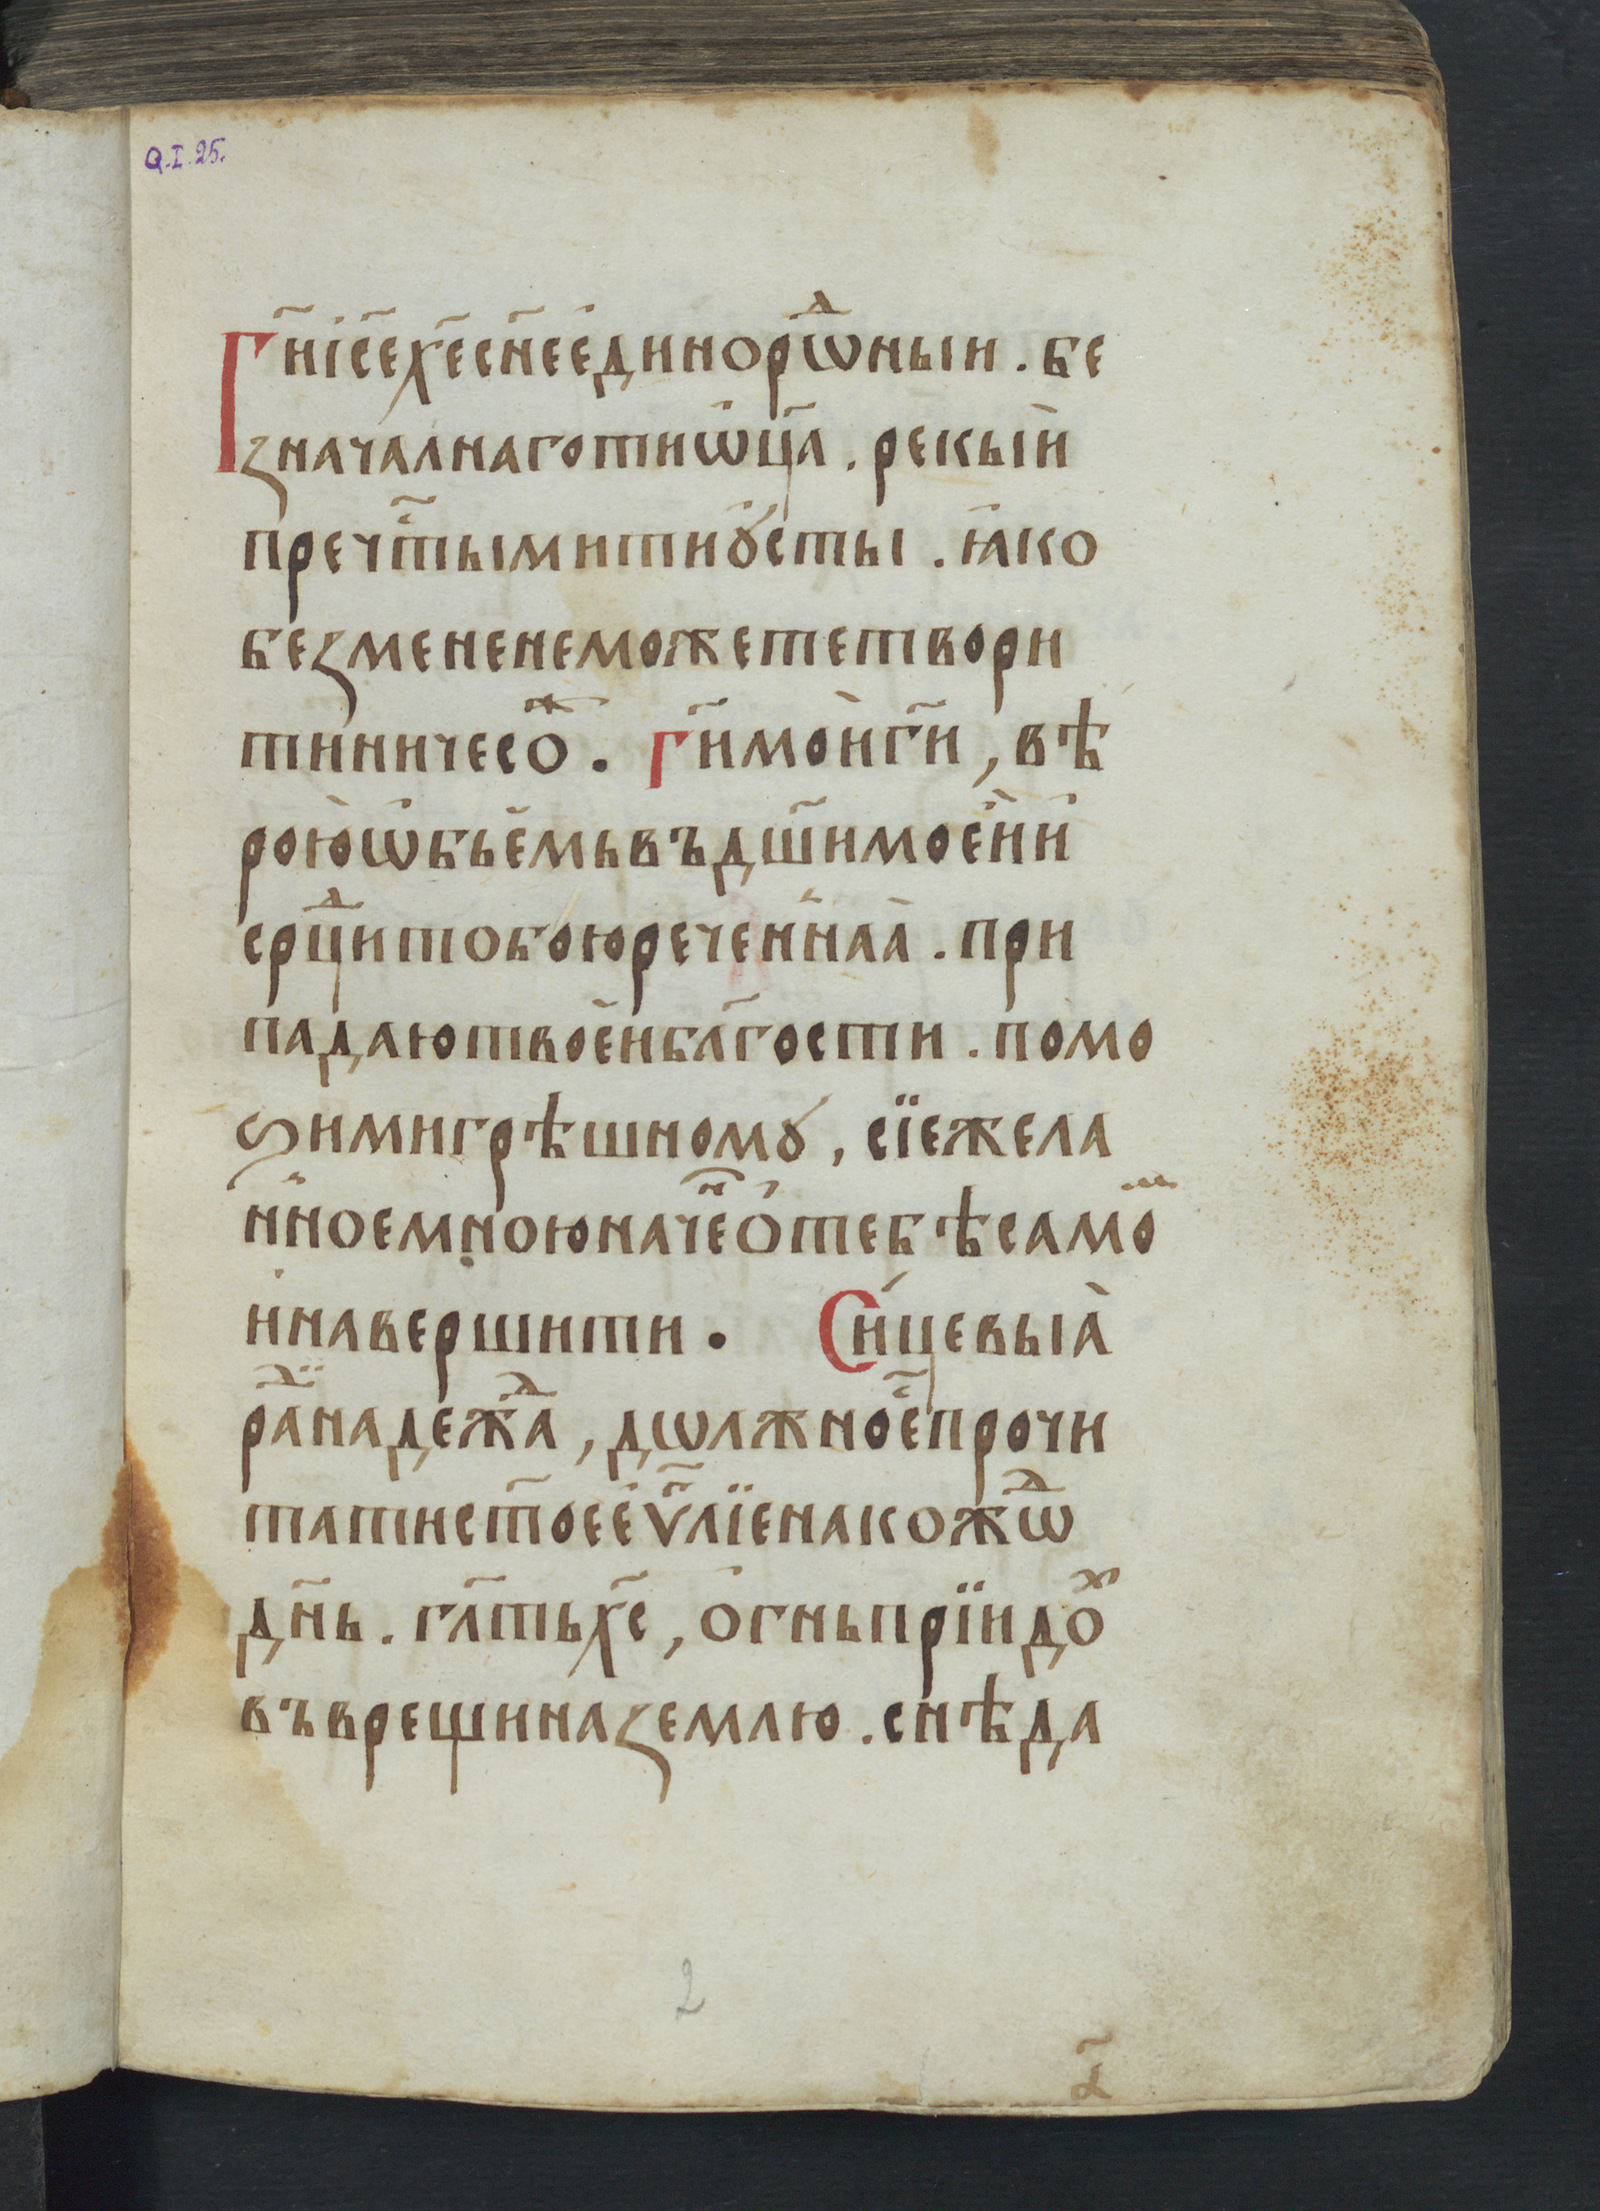 Q.I.25.
Гн҃іс҃ех҃есн҃еединорѿⷣныи . бе
значалнаготиѡц҃а . рекыи
пречⷭ҇тымитиꙋсты . ꙗко
безмененеможететвори
тиничесоⷤ . Гимоиги҃ , вѣ
роюѡбьемьвъдш҃имоеии
срⷣцитобоюреченнаа . при
падаютвоеибл҃гости . помо
ѕимигрѣшномꙋ , сїежела
нноемноюначеⷩ҇отебѣсамоⷨ
инавершити . Сицевыа
рⷣаинадежⷣа , дѡлжноеⷭ҇прочи
татист҃оееѵⷢ҇лїенакожѡⷣ
дн҃ь . гл҃тьх҃с , огньпрїидоⷯ
въврещиназемлю . снѣда
2
а҃